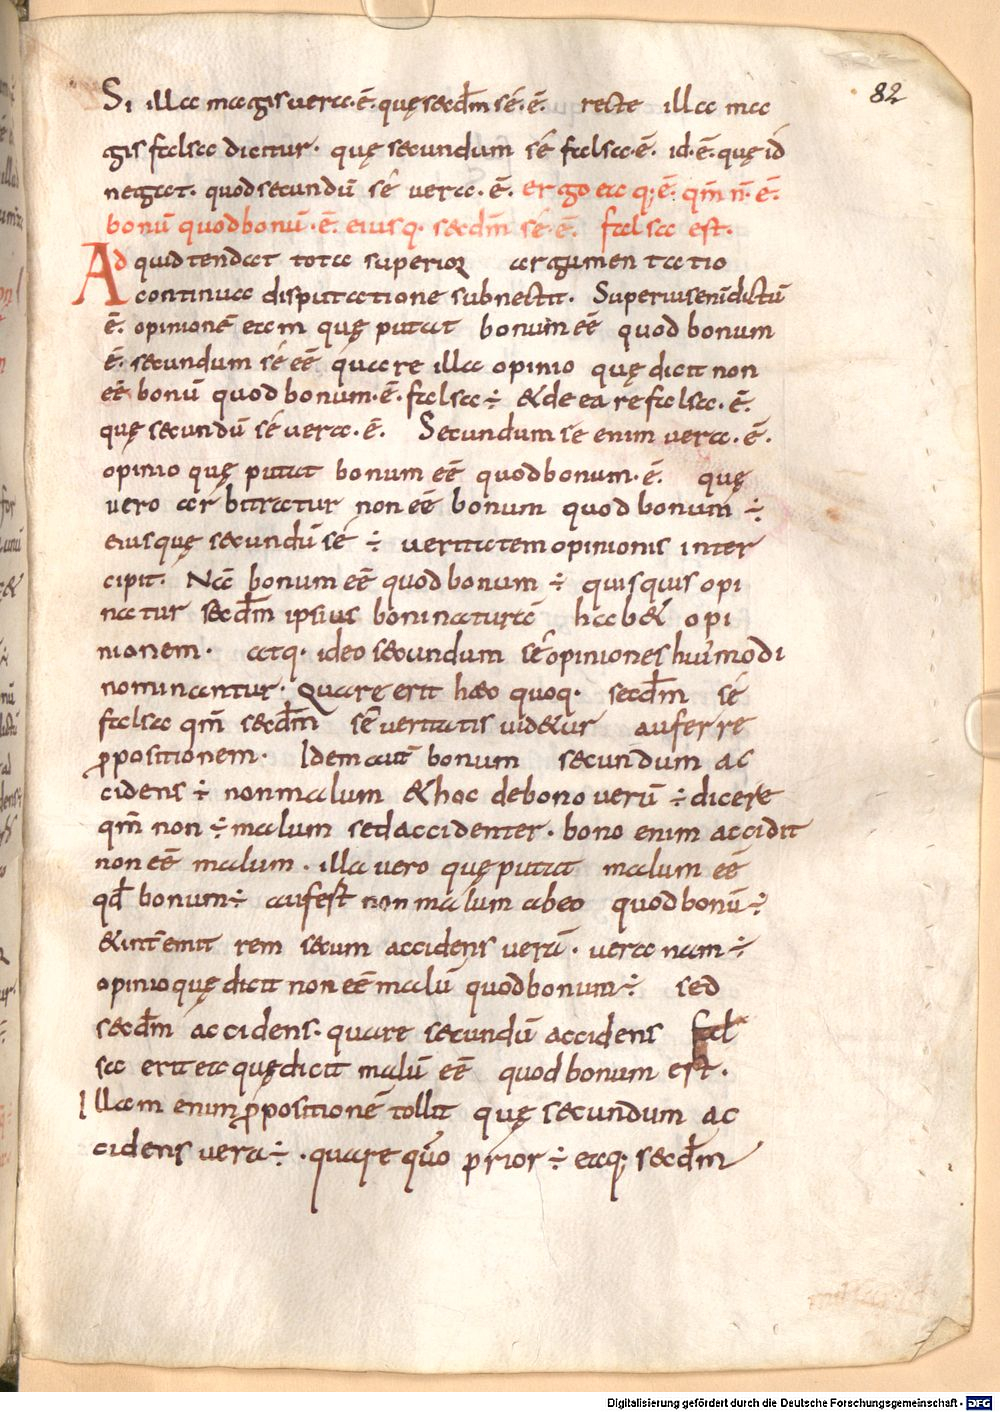 82
Si illa magis vera·ē·quę secd̄m sē·ē· recte illa ma
gis falsa dicitur· quę secundum sé falsa·ē· id·ē·quę id
negat· quod secundū sé vera·ē· ergo ea q;·ē· qm̄ n̄·ē·
bonū quod bonū·ē· eiusq· secd̄m sé·ē· falsa est.
Ad quid tendat tota superioꝝ argumentatio
continua disputatione subnectit· Superius eni dictū
ē· opinionē eam quę putat bonum eē quod bonum
ē· secundum sé eē quare illa opinio quę dicit non
eē bonū quod bonum·ē·falsa÷ & de ea re falsa·ē·
quę secundū sé vera·ē· Secundum se enim vera·ē·
opinio quę putat bonum eē quod bonum·ē· quę
vero arbitratur non eē bonum quod bonum ÷
eius quę secundū sé ÷ veritatem opinionis inter
cipit· Nā bonum eē quod bonum ÷ quisquis opi
natur secd̄m ipsius boni naturā hab& opi
nionem· atq· ideo secundum sé opiniones hui'modi
nominantur· Quare erit hæc quoq· secd̄m sé
falsa qm̄ secd̄m sē veritatis uid&ur auferre
ꝓpositionem· Idem aut̄ bonum secundum ac
cidens ÷ non malum & hoc de bono verū ÷ dicere
qm̄ non ÷ malum sed accidenter· bono enim accidit
non eē malum· illa vero quę putat malum eē
qd̄ bonum÷ aufert non malum ab eo quod bonū÷
& int̄emit rem secum accidens verā· vera nam÷
opinio quę dicit non eē malū quod bonum÷ sed
secd̄m accidens· quare secundū accidens fal
sa erit ea quę dicit malū eē quod bonum est·
Illam enim ꝓpositionē tollit quę secundum ac
cidens vera÷·quare quō prior ÷ eaq; secd̄m
Digitalisierung gefördert durch die Deutsche Forschungsgemeinschaft - DFG